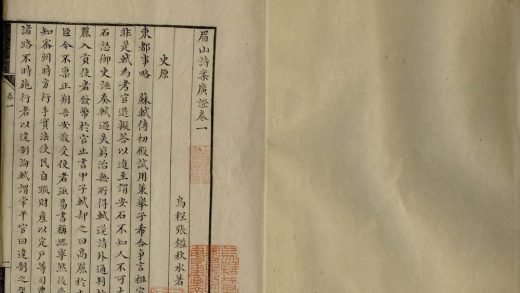 眉山詩案廣證卷一
烏程張鑑秋水著
史原
東都事略 蘇軾傳初殿試用策舉子希合爭言祖宗
非是軾為考官退擬答以進至謂安石不知人不可大
石怒御史誣奏軾過失窮治無所得軾遂請外通判
麗入貢使者發幣於官主書甲子軾却之曰高麗於
臣今不稟正朔吾安敢受使者亟易書稱熙寧然後
知密州時方行手實法使民自疏財產以定戶等司
諸路不時施行者以違制論軾謂常平官曰違制之
卷一